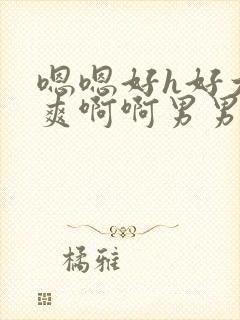 嗯嗯好h好大
爽啊啊男男
橘雅